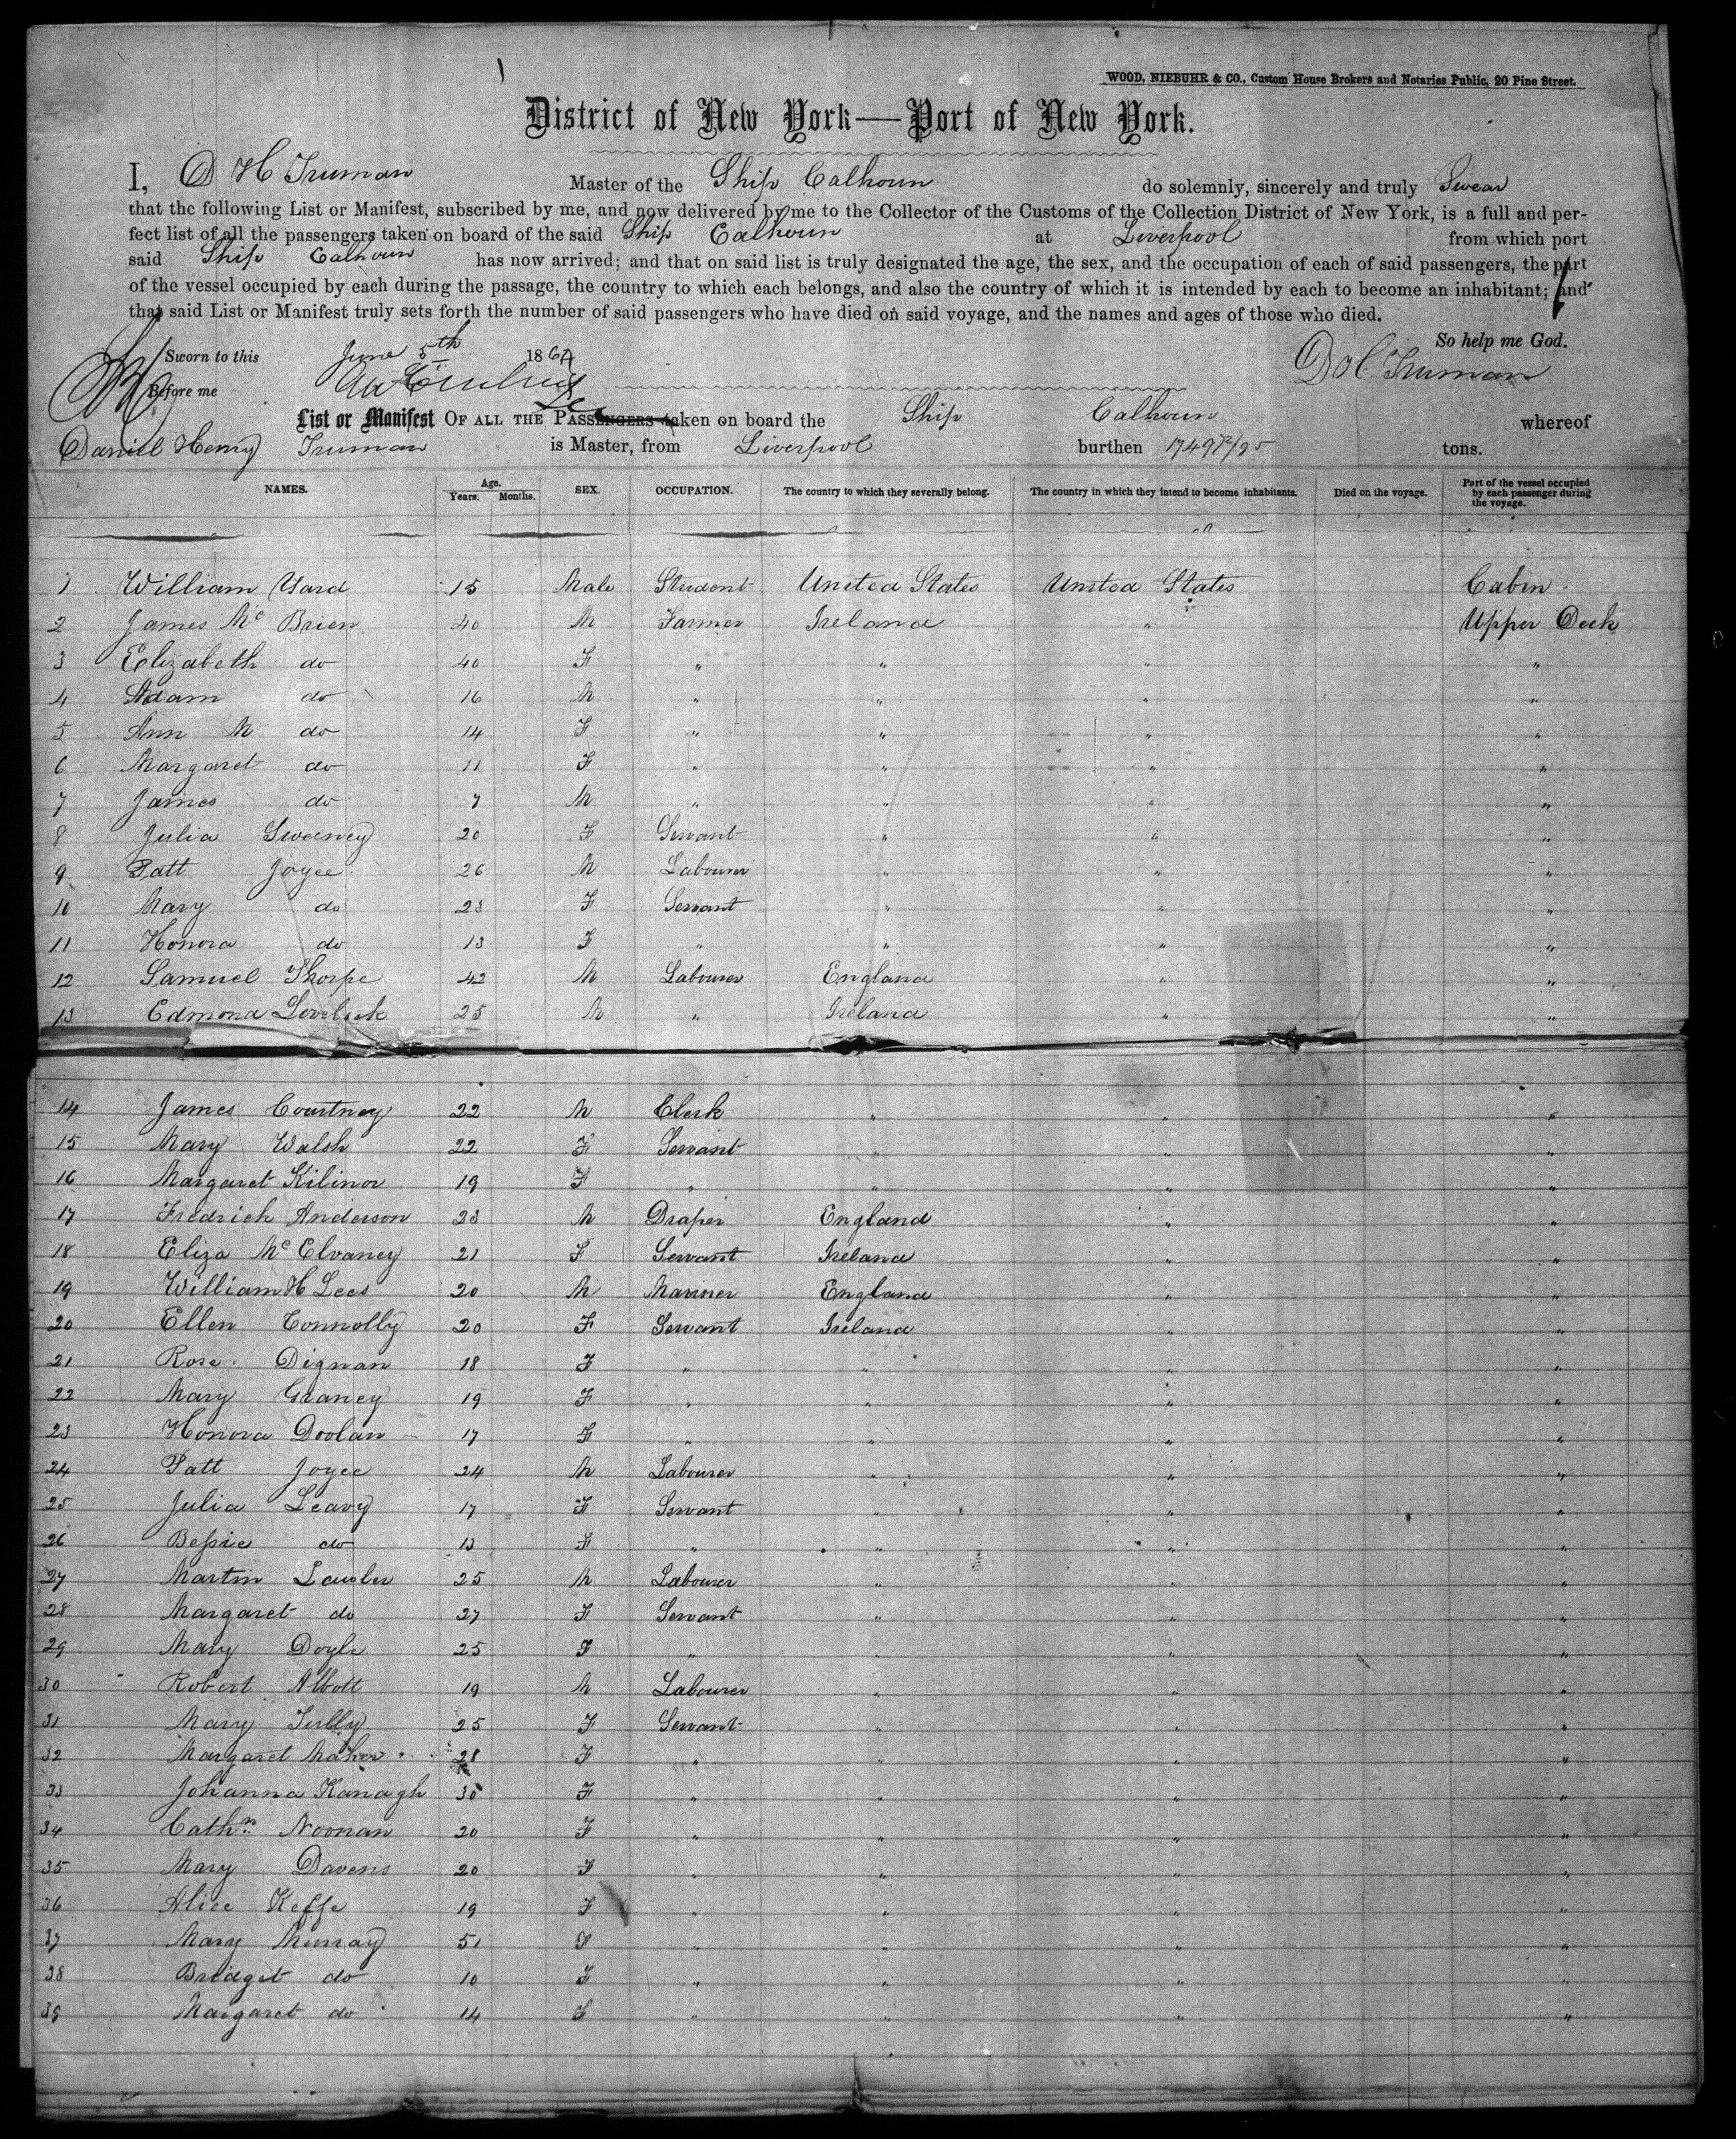 WOOD, NIEBUHR & CO., Custom House Brokers and Notaries Public, 20 Pine Street.
District of New York—Port of New York.
I, D H Truman Master of the Ship Calhoun do solemnly, sincerely and truly Swear
that the following List or Manifest, subscribed by me, and now delivered by me to the Collector of the Customs of the Collection District of New York, is a full and per-
fect list of all the passengers taken on board of the said Ship Calhoun at Liverpool from which port
said Ship Calhoun has now arrived; and that on said list is truly designated the age, the sex, and the occupation of each of said passengers, the part
of the vessel occupied by each during the passage, the country to which each belongs, and also the country of which it is intended by each to become an inhabitant; and
that said List or Manifest truly sets forth the number of said passengers who have died on said voyage, and the names and ages of those who died.
So help me God.
Sworn to this June 5th 186 D H Truman
Before me
List or Manifest OF ALL THE PASSENGERS taken on board the Ship Calhoun whereof
Daniel Henry Truman is Master, from Liverpool burthen 1749 72/95 tons.
NAMES. Age. Years. Months. SEX. OCCUPATION. The country to which they severally belong. The country in which they intend to become inhabitants. Died on the voyage. Part of the vessel occupied by each passenger during the voyage.
1 William Yard 15 Male Student United States United States Cabin
2 James Mc Brien 40 M Farmer Ireland " Upper Deck
3 Elizabeth do 40 F " " " "
4 Adam do 16 M " " " "
5 Ann M do 14 F " " " "
6 Margaret do 11 F " " " "
7 James do 7 M " " " "
8 Julia Sweeney 20 F Servant " " "
9 Patt Joyce 26 M Labourer " " "
10 Mary do 23 F Servant " " "
11 Honora do 13 F " " " "
12 Samuel Thorpe 42 M Labourer England " "
13 Edmond 25 M " Ireland " "
14 James Courtney 22 M Clerk " " "
15 Mary Walsh 22 F Servant " " "
16 Margaret Kilinor 19 F " " " "
17 Fredrich Anderson 23 M Draper England " "
18 Eliza Mc Elvaney 21 F Servant Ireland " "
19 William H Lees 20 M Mariner England " "
20 Ellen Connolly 20 F Servant Ireland " "
21 Rose Dignan 18 F " " " "
22 Mary Graney 19 F " " " "
23 Honora Doolan 17 F " " " "
24 Patt Joyce 24 M Labourer " " "
25 Julia Leavy 17 F Servant " " "
26 Bessie do 13 F " " " "
27 Martin Lawler 25 M Labourer " " "
28 Margaret do 27 F Servant " " "
29 Mary Doyle 25 F " " " "
30 Robert Abbott 19 M Labourer " " "
31 Mary Tully 25 F Servant " " "
32 Margaret Maher 28 F " " " "
33 Johanna Kanagh 30 F " " " "
34 Cathn Noonan 20 F " " " "
35 Mary Davens 20 F " " " "
36 Alice Keffe 19 F " " " "
37 Mary Murray 51 F " " " "
38 Bridget do 10 F " " " "
39 Margaret do 14 F " " " "